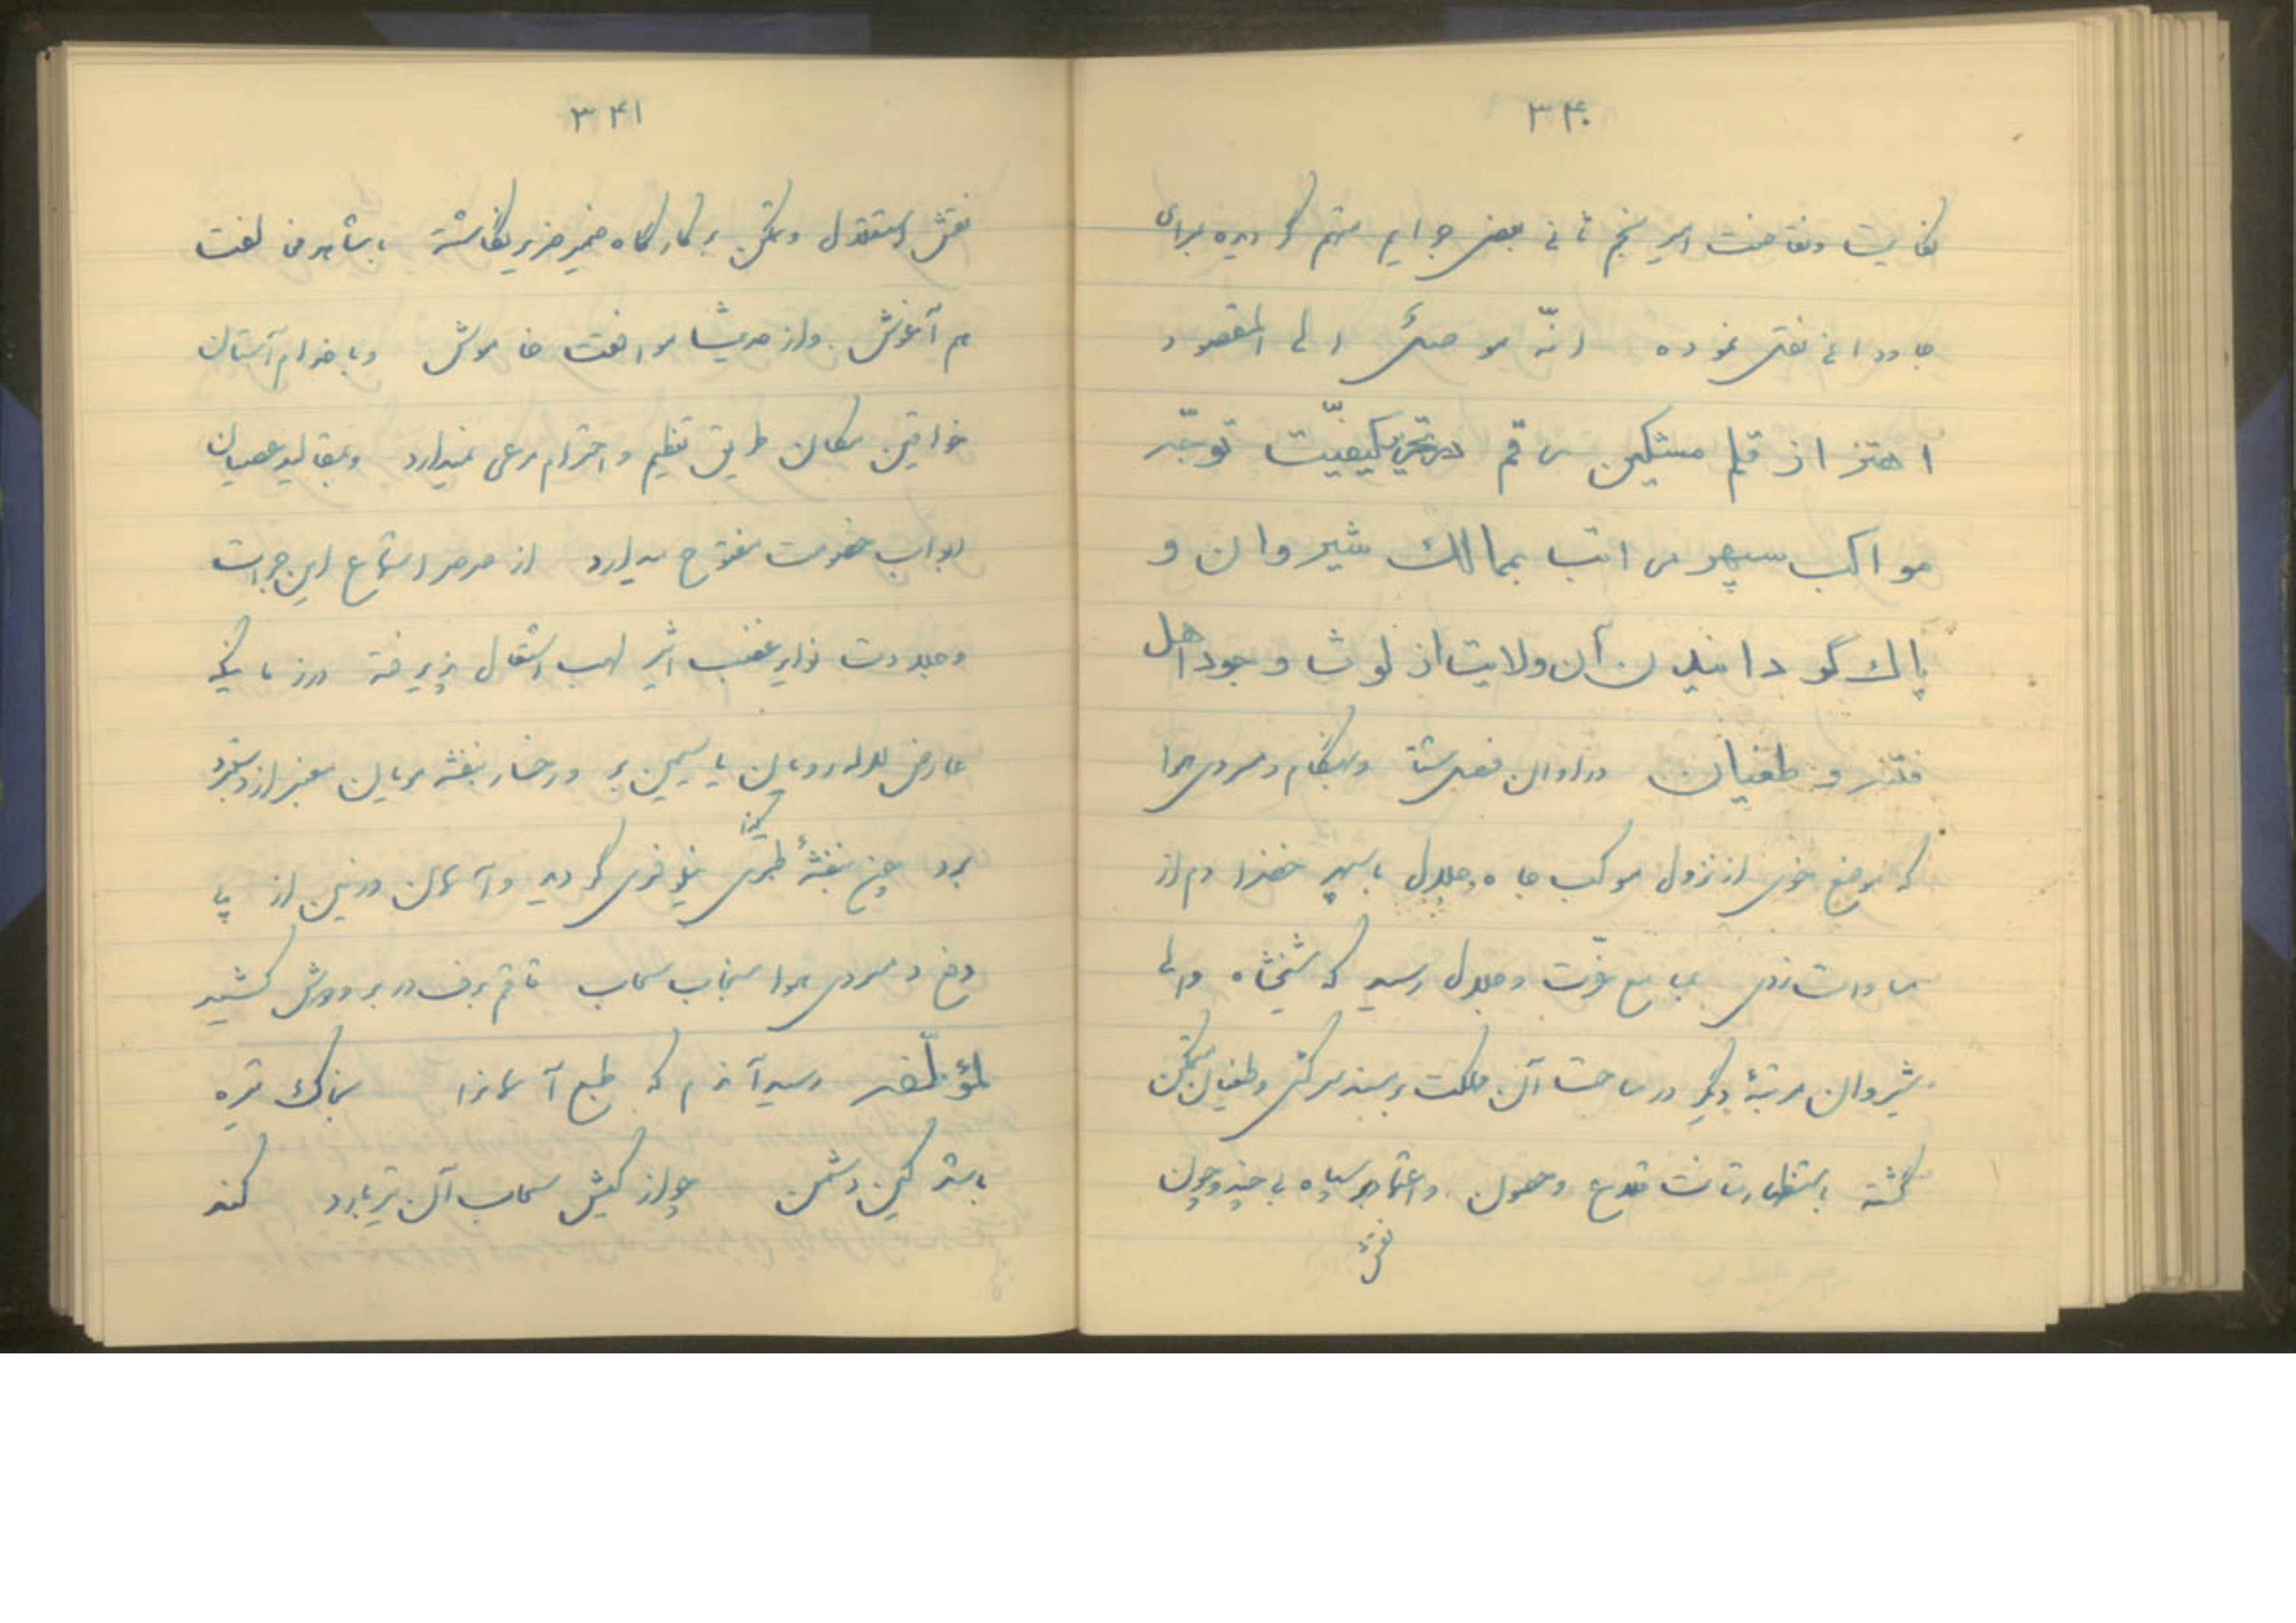 ۳۴۰
کفایت و نقاضت امیر نجم ثانی ببعض جرایم متهم گردیده بسرای
جاودانی نقل نموده انّه موصلک الی المقصود
اهتزاز قلم مشکین رقم در تحریر کیفیّت توجّه
مواکب سپهر مراتب بممالک شیروان و
پاک گردانیدن آن ولایت از لوث وجود اهل
فتنه و طغیان در اوان فصل شتا و هنگام سردی هوا
که موضع خوی از نزول موکب جاه و جلال با سپهر خضرا دم از
مساوات زدی بمسامع عزّت و جلال رسید که شیخشاه والی
شیروان مرتبهٔ دیگر در ساحت آن مملکت بر مسند سرکشی و طغیان متمکن
گشته باستظهار متانت قلاع و حصون و اعتماد بر سپاه بی چند و چون
نقش
۳۴۱
نقش استقلال و تمکن بر کارگاه ضمیر ضریر نگاشته با شاهد مخالفت
هم آغوش و از حدیث موافقت خاموش و با خدام آستان
خواقین مکان طریق تعظیم و احترام مرعی نمیدارد و بمقالید عصیان
ابواب خصومت مفتوح میدارد از صرصر استماع این جرات
و جلادت نوایر غضب اثیر لهب اشتعال پذیرفته در زمانیکه
عارض لاله رویان یاسمین بر و رخسار بنفشه مویان سمنبر از دستبرد
برد چون بنفشهٔ طبری گونه نیلوفری گردید و آسمان و زمین از بی
دخ و سردی هوا سنجاب سحاب و قاقم برف در بر و دوش کشید
لمؤلّفه رسید آندم که طبع آسمانرا بخاک تیره
باشد کین دشمن چو از کیش سحاب آن تیر بارد کند